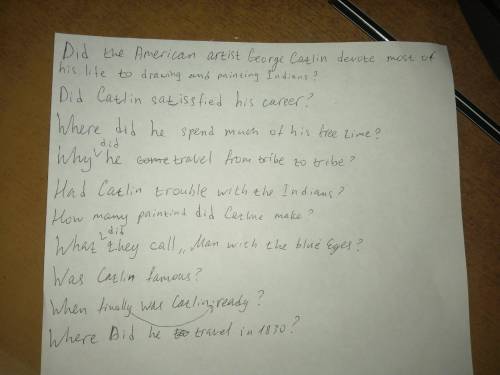 Did the American artist George Catlin devote most of
his life to drawing and painting Indians?
Did Catlin satissfied his career?
Where did he spend much of his free time?
Why did he come travel from tribe to tribe?
Had Catlin trouble with the Indians?
How many paintind did Catline make?
What did they call „Man with the blue Eges?
Was Catlin famous?
When finally was Catlin ready?
Where Did he to travel in 1830?